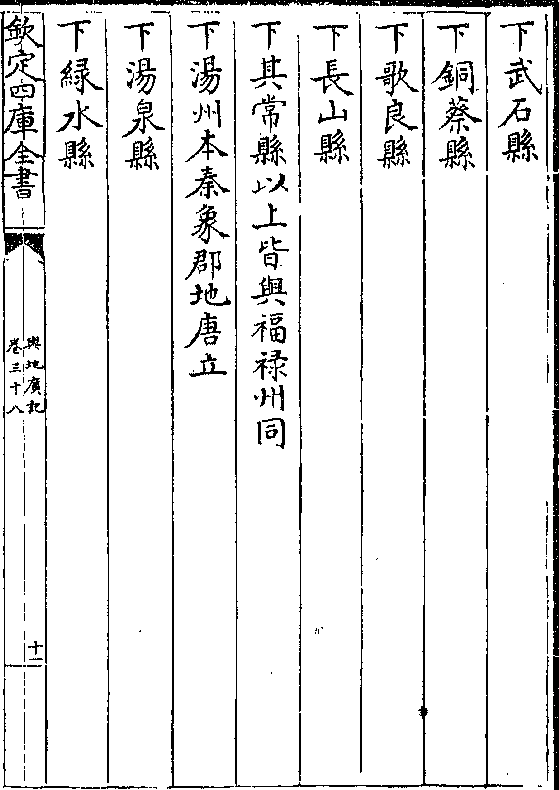 下武石縣
下銅蔡縣
下歌良縣
下長山縣
下其常縣以上皆與福禄州同
下湯州本秦象郡地唐立
下湯泉縣
下緑水縣
欽定四庫全書
輿地廣記
卷三十八
十一